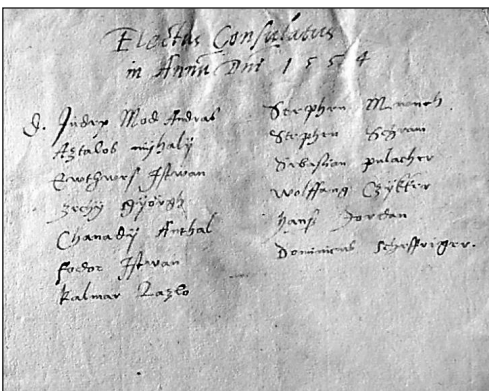 Electus Consulatus
in Annu Dni 1554
D. Judex Mod Andras
Aztalos mÿhalÿ
Ewthwes Istwan
Zechÿ Gÿorgÿ
Chanadÿ Anthal
fodor Istwan
Kalmar Lazlo
Stephen
Stephen Schram
Sebastian pulacher
Wolffgang Czykker
Hans Jordan
Dominicus